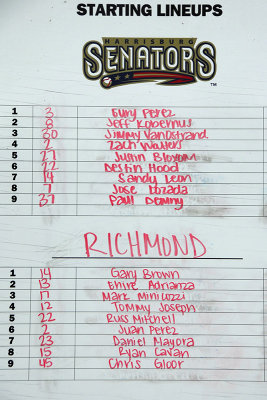 STARTING LINEUPS
HARRISBURG
SENATORS
TM
1 3 Eury Perez
2 8 Jeff Kobernus
3 30 Jimmy VanOstrand
4 2 Zach Walters
5 27 Justin Bloxom
6 22 Destin Hood
7 14 Sandy Leon
8 7 Jose Lozada
9 37 Paul Demny
RICHMOND
1 14 Gary Brown
2 13 Ehire Adrianza
3 17 Mark Minicozzi
4 12 Tommy Joseph
5 22 Russ Mitchell
6 2 Juan Perez
7 23 Daniel Mayora
8 15 Ryan Cavan
9 45 Chris Gloor